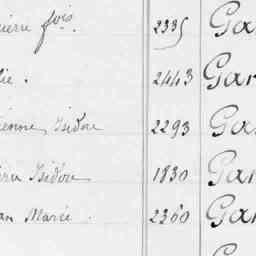 fois. 2335 Ga
lie. 2443 Gar
ienne, Isidore 2293 Ga
Isidore 1830 Gar
an Marie. 2360 Gar